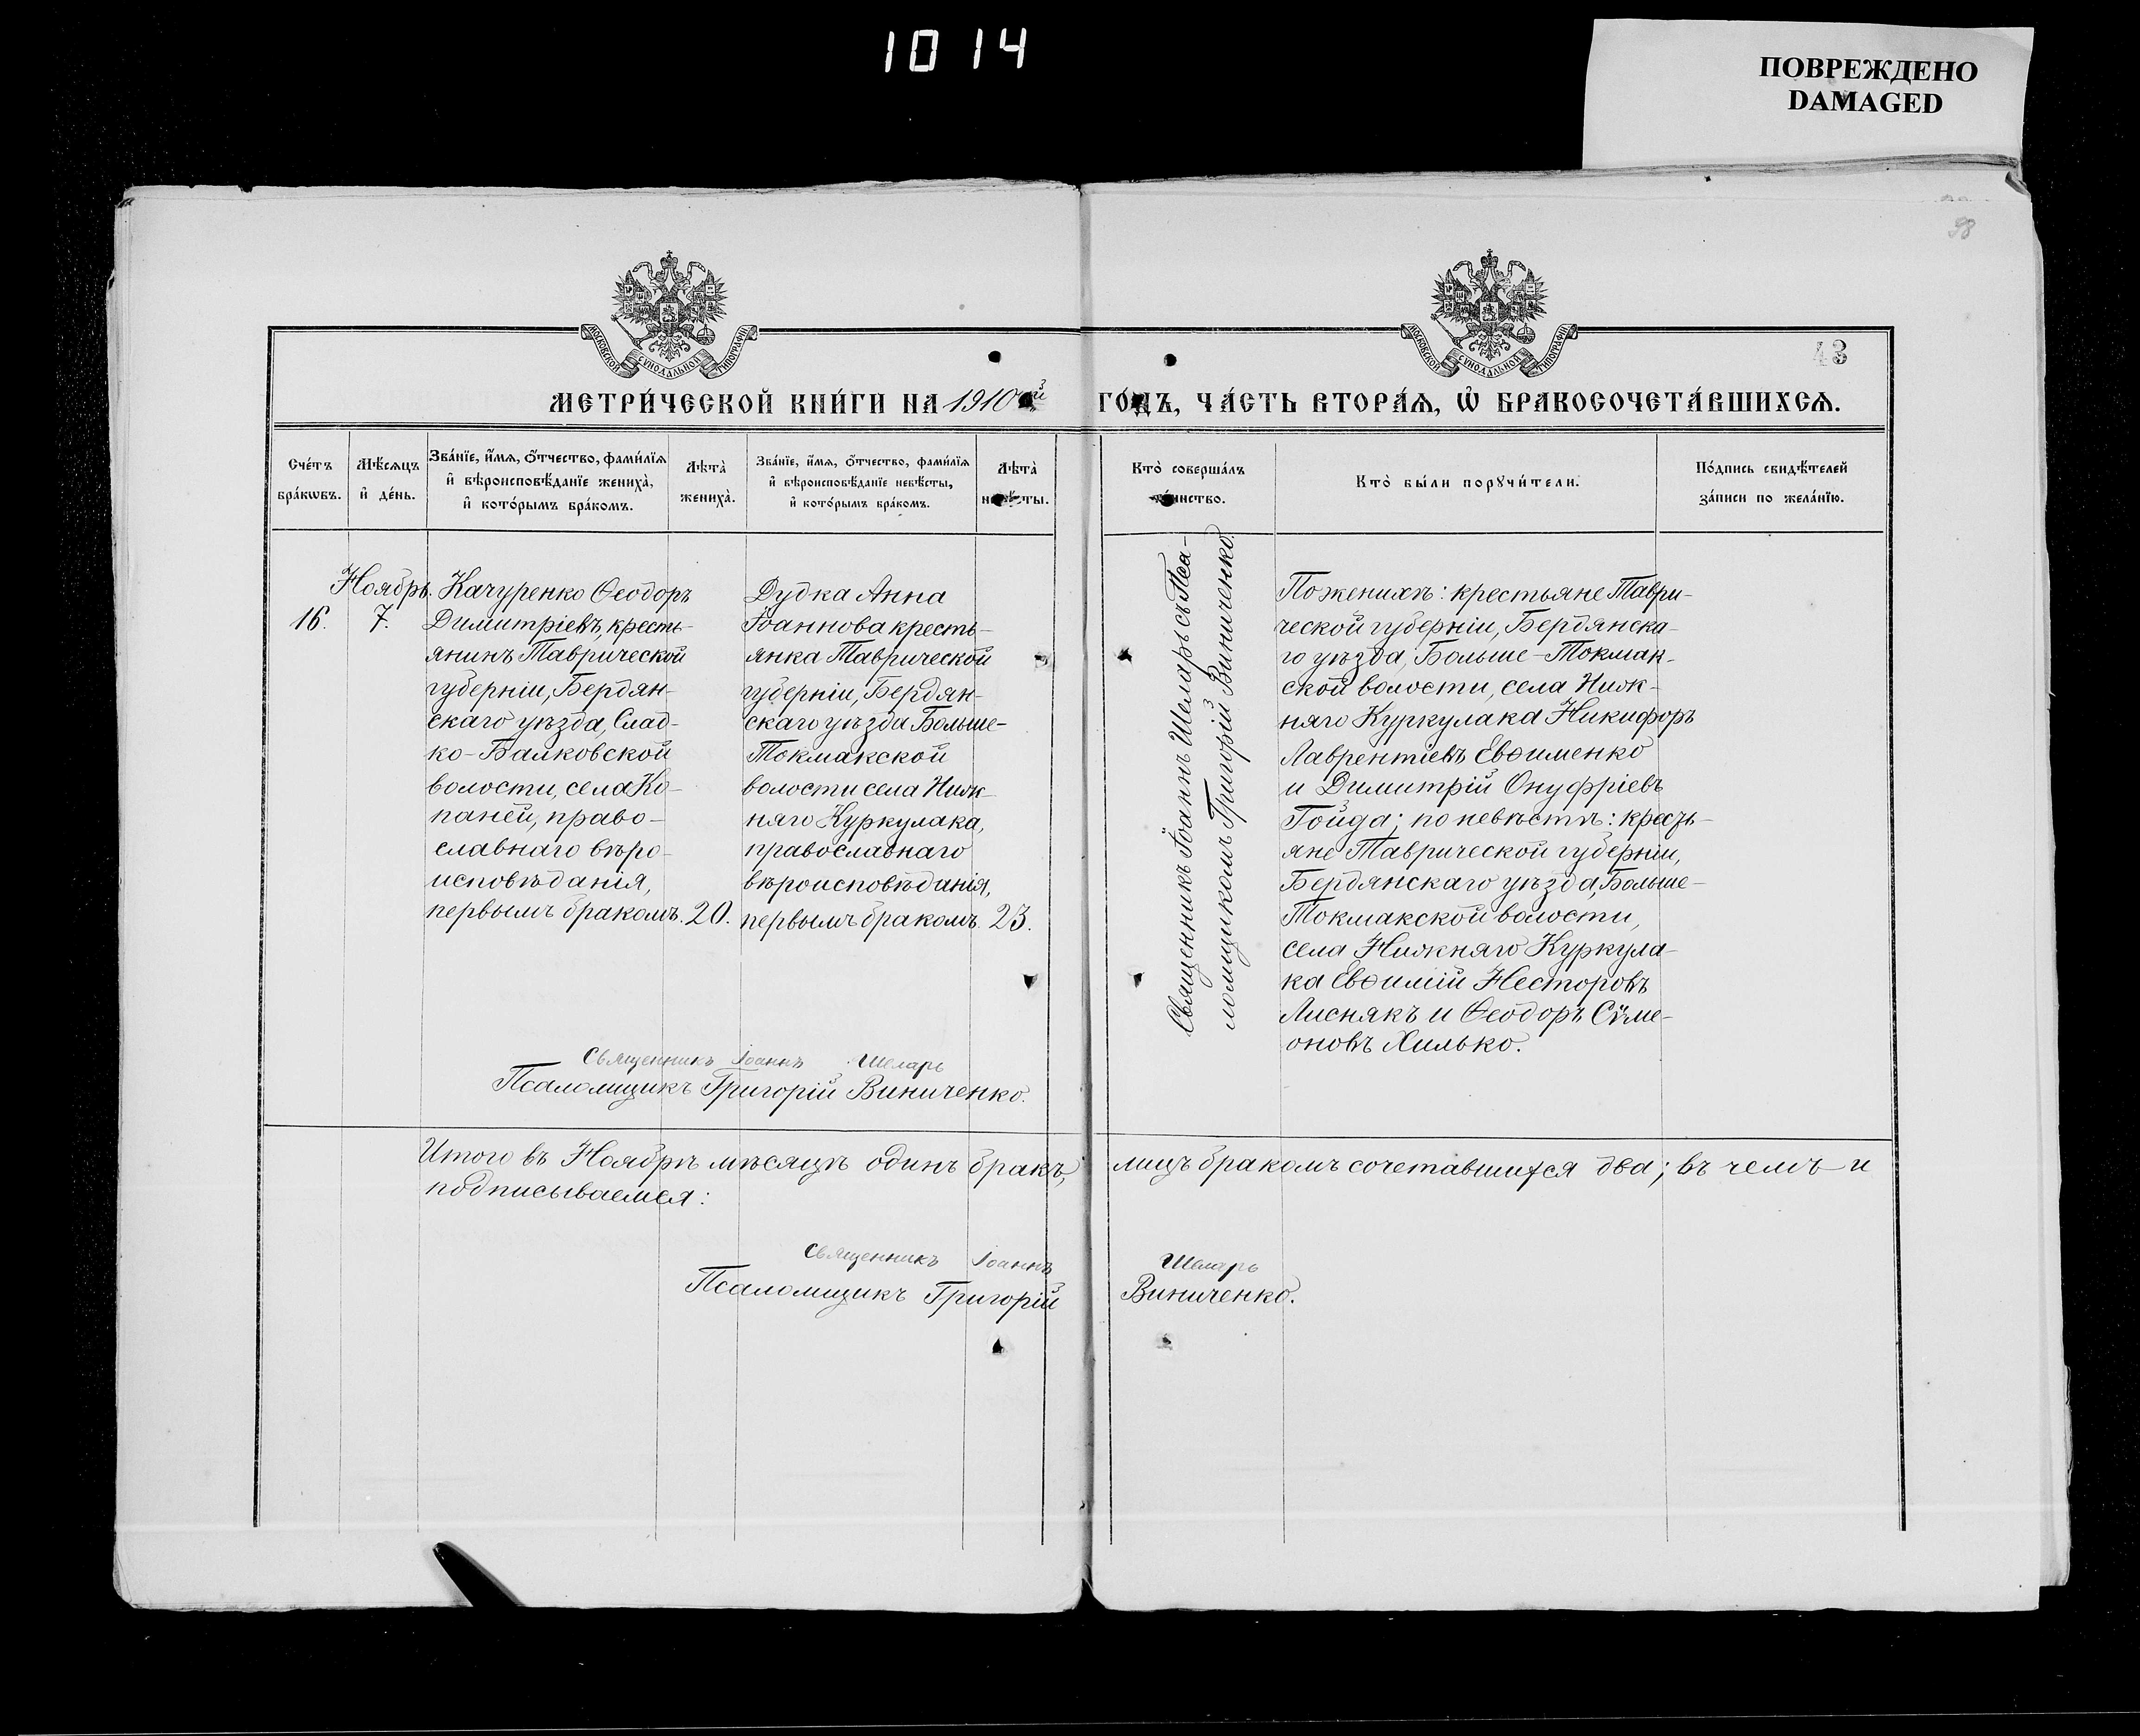 1014
ПОВРЕЖДЕНО
DAMAGED
98
МОСКОВСКОЙ СѴНОДАЛЬНОЙ ТИПОГРАФІИ
МОСКОВСКОЙ СѴНОДАЛЬНОЙ ТИПОГРАФІИ
43
МЕТРИ́ЧЕСКОЙ КНИ́ГИ НА 1910й ГО́ДЪ, ЧА́СТЬ ВТОРА́Ѧ, Ѡ҆ БРАКОСОЧЕТА́ВШИХСѦ.
Сче́тъ
бра́кѡвъ.
Мѣ́сѧцъ
и҆ де́нь.
Зва́нїе, и҆́мѧ, ѻ҆́тчество, фами́лїѧ
и҆ вѣроисповѣ́данїе жениха̀,
и҆ кото́рымъ бра́комъ.
Лѣта̀
жениха̀.
Зва́нїе, и҆́мѧ, ѻ҆́тчество, фами́лїѧ
и҆ вѣроисповѣ́данїе невѣ́сты,
и҆ кото́рымъ бра́комъ.
Лѣта̀
невѣ́сты.
Кто̀ соверша́лъ
та́инство.
Кто̀ бы́ли порꙋчи́тели.
По́дпись свидѣ́телей
за́писи по жела́нїю.
Ноябрь.
16.
7.
Качуренко Ѳеодоръ
Димитріевъ, кресть-
янинъ Таврической
губерніи, Бердян-
скаго уѣзда, Слад-
ко-Балковской
волости, села Ко-
паней, право-
славнаго вѣро-
исповѣданія,
первымъ бракомъ.
20.
Дудка Анна
Іоаннова кресть-
янка Таврической
губерніи, Бердян-
скаго уѣзда Больше-
Токмакской
волости села Ниж-
няго Куркулака,
православнаго
вѣроисповѣданія,
первымъ бракомъ.
23.
Священникъ Іоаннъ Шеларь съ Пса-
ломщикомъ Григорій Виниченко.
По женихѣ: крестьяне Таври-
ческой губерніи, Бердянска-
го уѣзда, Больше-Токмак-
ской волости, села Ниж-
няго Куркулака Никифоръ
Лаврентіевъ Евѳименко
и Димитрій Онуфріевъ
Гойда; по невѣстѣ: кресть-
яне Таврической губерніи,
Бердянскаго уѣзда, Больше-
Токмакской волости,
села Нижняго Куркула-
ка Евѳимій Несторовъ
Лиснякъ и Ѳеодоръ Сѵме-
оновъ Хилько.
Священникъ Іоаннъ Шеларь
Псаломщикъ Григорій Виниченко.
Итого въ Ноябрѣ мѣсяцѣ одинъ бракъ, лицъ бракомъ сочетавшихся два; въ чемъ и
подписываемся:
Священникъ Іоаннъ Шеларь
Псаломщикъ Григорій Виниченко.